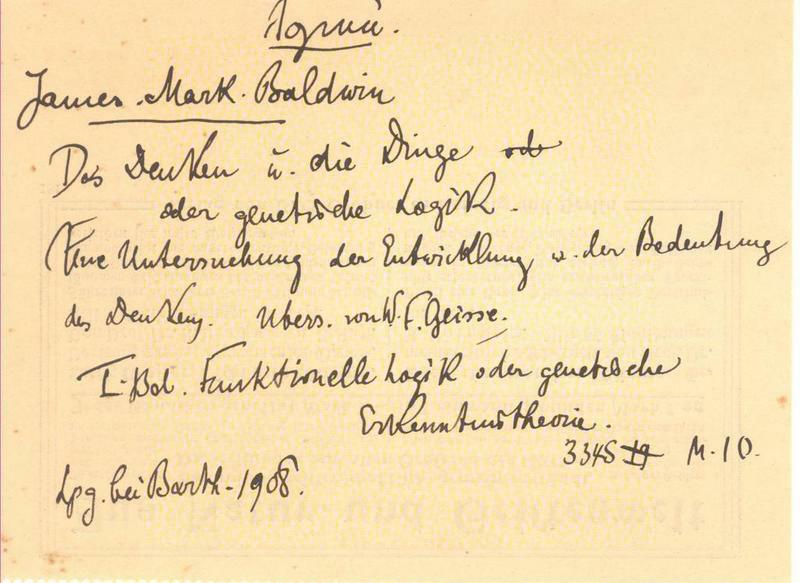 James Mark Baldwin
Das Denken u. die Dinge
oder genetische Logik.
Eine Untersuchung der Entwicklung u. der Bedeutung
des Denkens. Übers. von W. F. Geisse.
I. Bd. Funktionelle Logik oder genetische
Erkenntnistheorie.
334S M. 10.
Lpg. bei Barth - 1908.